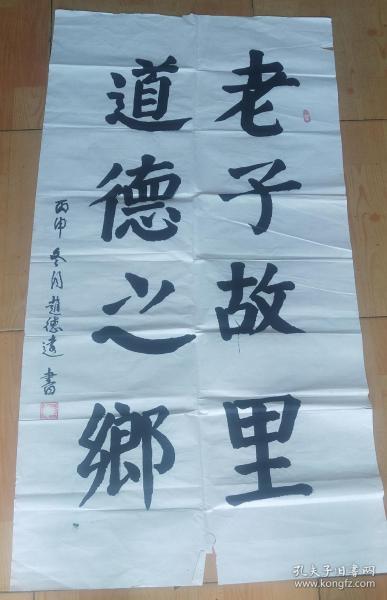 老子故里
道德之鄉
丙申 冬月 趙德遠 書
孔夫子旧书网
www.kongfz.com